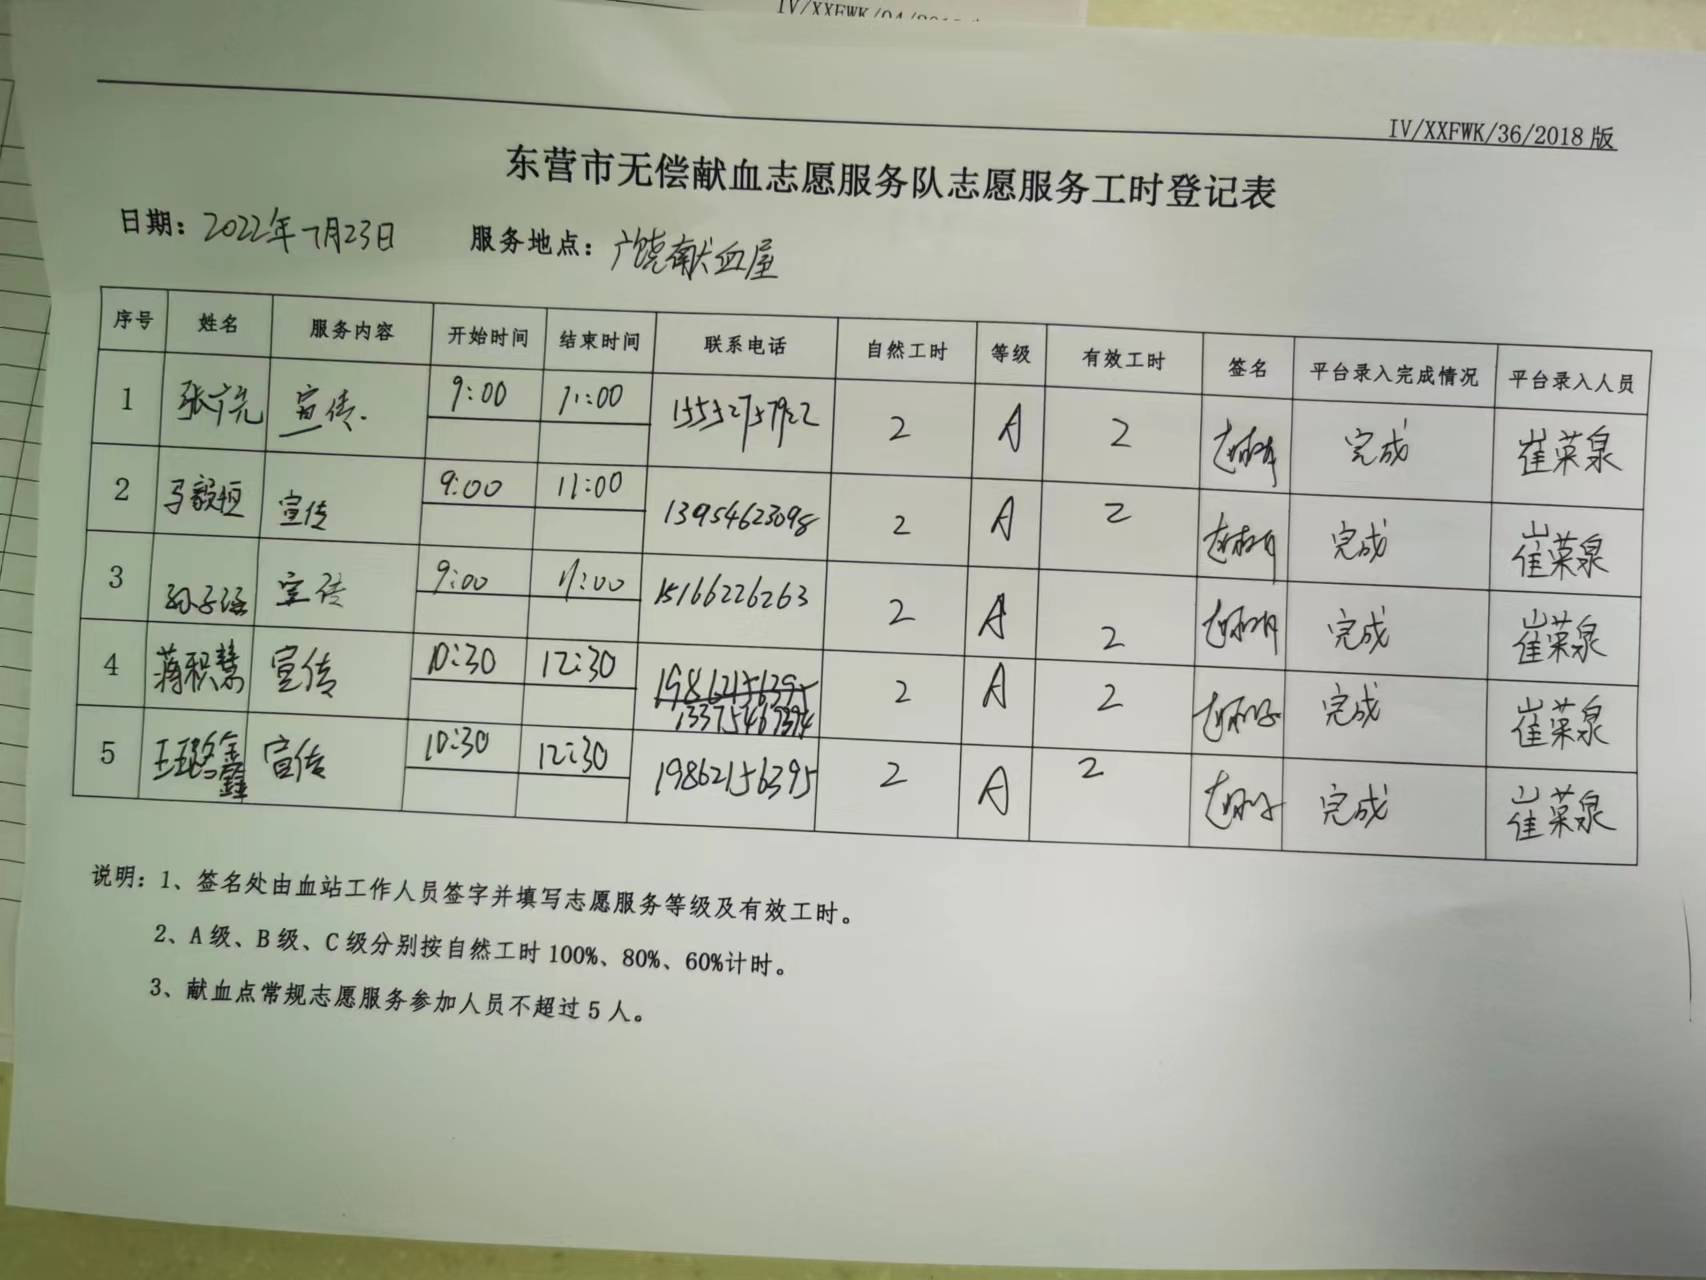 IV/XXFWK/36/2018版
东营市无偿献血志愿服务队志愿服务工时登记表
日期：2022年7月23日 服务地点：广饶献血屋
序号 姓名 服务内容 开始时间 结束时间 联系电话 自然工时 等级 有效工时 签名 平台录入完成情况 平台录入人员
1 宣传. 9:00 11:00 2 A 2 完成 崔荣泉
2 马毅恒 宣传 9:00 11:00 13954623098 2 A 2 完成 崔荣泉
3 宣传 9:00 11:00 15166226263 2 A 2 完成 崔荣泉
4 蒋积慧 宣传 10:30 12:30 19862156395 2 A 2 完成 崔荣泉
5 王珞鑫 宣传 10:30 12:30 19862156395 2 A 2 完成 崔荣泉
说明：1、签名处由血站工作人员签字并填写志愿服务等级及有效工时。
2、A级、B级、C级分别按自然工时100%、80%、60%计时。
3、献血点常规志愿服务参加人员不超过5人。